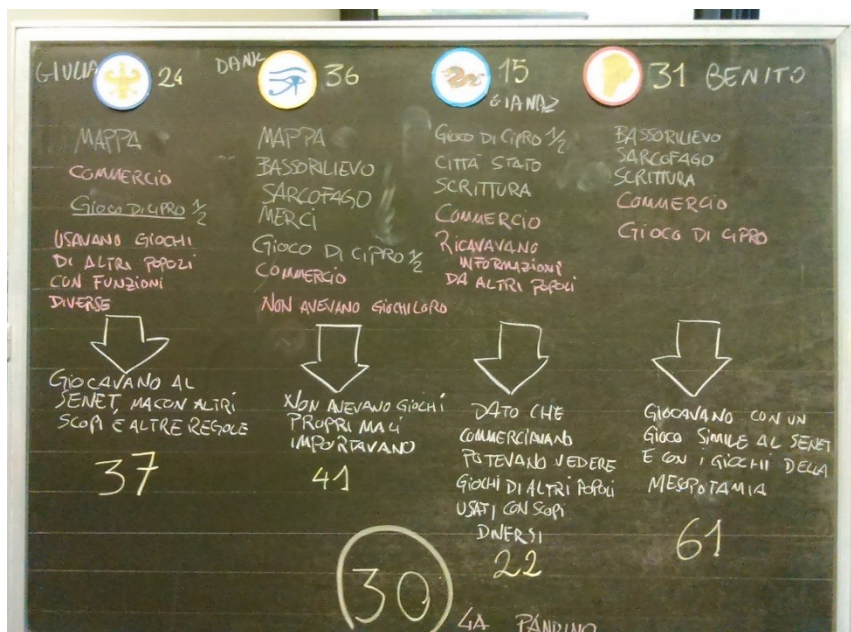 GIULIA 24
MAPPA
COMMERCIO
GIOCO DI CIPRO 1/2
USAVANO GIOCHI
DI ALTRI POPOLI
CON FUNZIONI
DIVERSE
GIOCAVANO AL
SENET, MA CON ALTRI
SCOPI E ALTRE REGOLE
37
36
MAPPA
BASSORILIEVO
SARCOFAGO
MERCI
GIOCO DI CIPRO 1/2
COMMERCIO
NON AVEVANO GIOCHI LORO
NON AVEVANO GIOCHI
PROPRI MA LI
IMPORTAVANO
41
15
GIANAZ
GIOCO DI CIPRO 1/2
CITTÀ STATO
SCRITTURA
COMMERCIO
RICAVAVANO
INFORMAZIONI
DA ALTRI POPOLI
DATO CHE
COMMERCIAVANO
POTEVANO VEDERE
GIOCHI DI ALTRI POPOLI
USATI CON SCOPI
DIVERSI
22
31 BENITO
BASSORILIEVO
SARCOFAGO
SCRITTURA
COMMERCIO
GIOCO DI CIPRO
GIOCAVANO CON UN
GIOCO SIMILE AL SENET
E CON I GIOCHI DELLA
MESOPOTAMIA
61
30
4A PANDINO